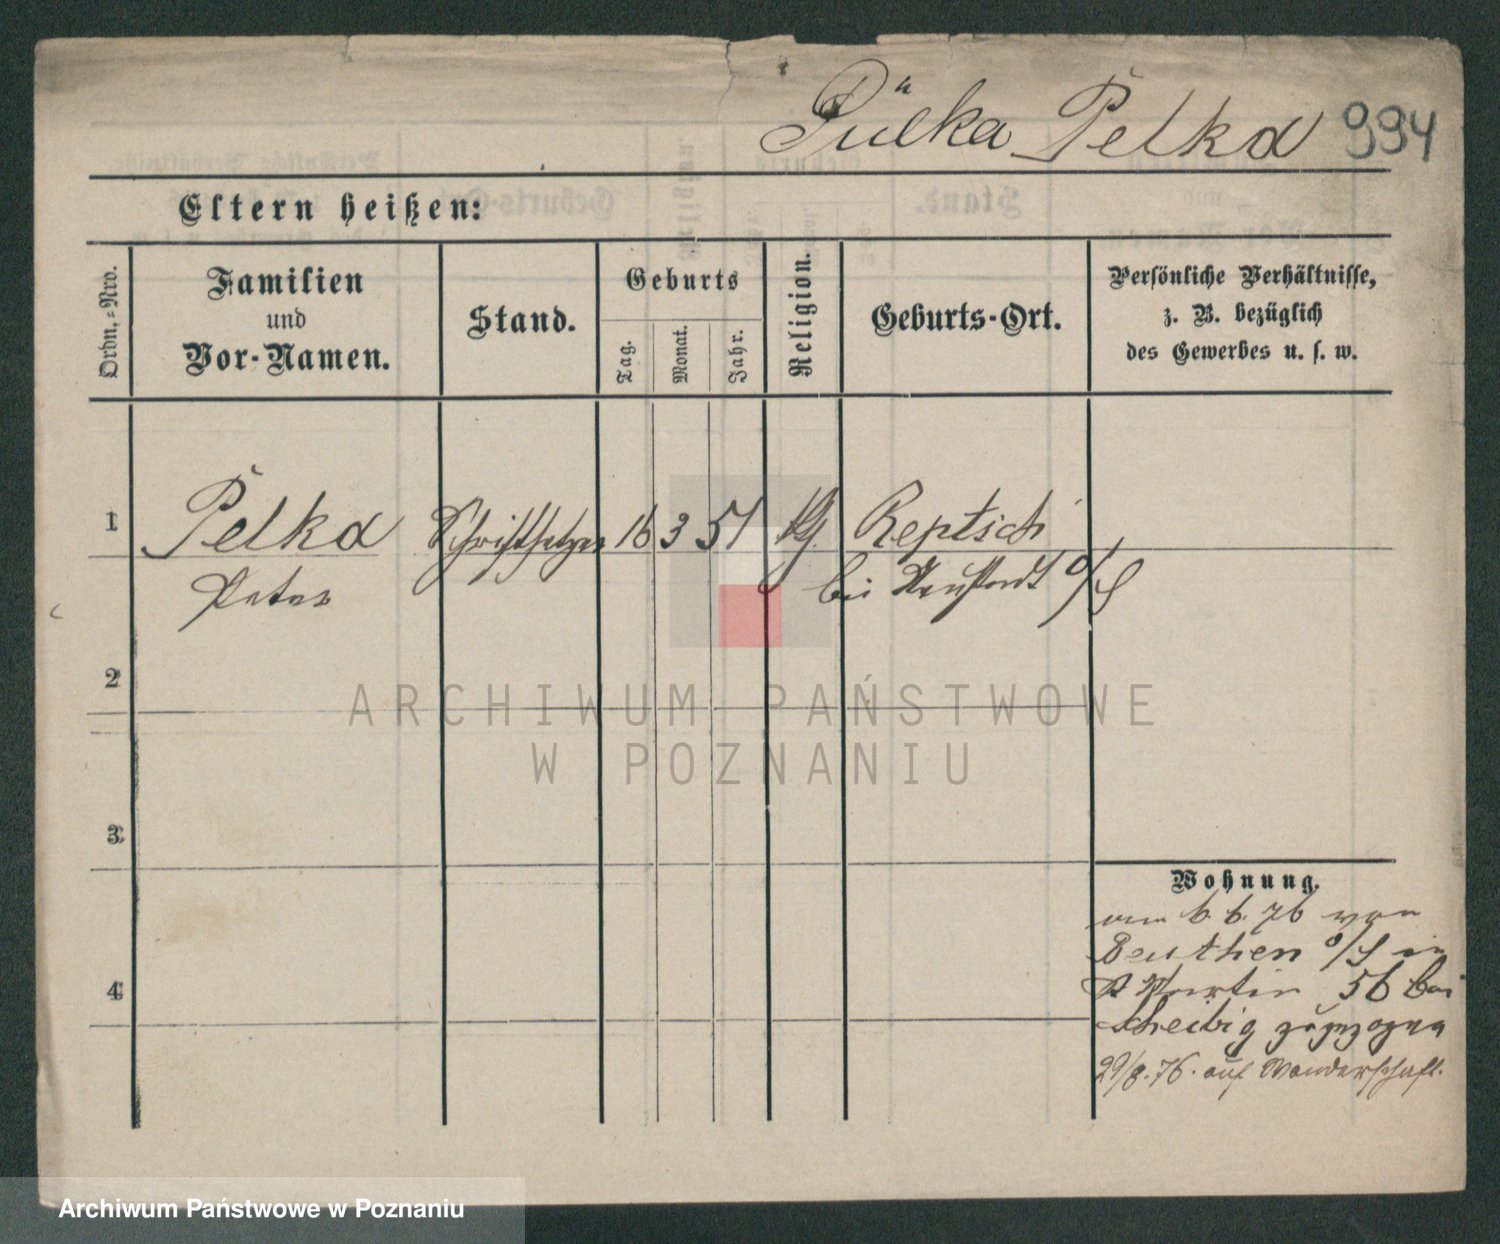 Pülka Pelka 994
Eltern heißen:
Ordn.-Nro.
Familien
und
Vor-Namen.
Stand.
Geburts
Tag.
Monat.
Jahr.
Religion.
Geburts-Ort.
Persönliche Verhältnisse,
z. B. bezüglich
des Gewerbes u. s. w.
1 Pelka Schriftsetzer 16 3 57 kg. Reptsch
Peter bei Neustadt o/S
2
3
4
Wohnung.
am 6. 6. 76 von
Beuthen o/S in
St Martin 56 bei
Scheibig zugezogen
29/8. 76. auf Wanderschaft.
ARCHIWUM PAŃSTWOWE
W POZNANIU
Archiwum Państwowe w Poznaniu